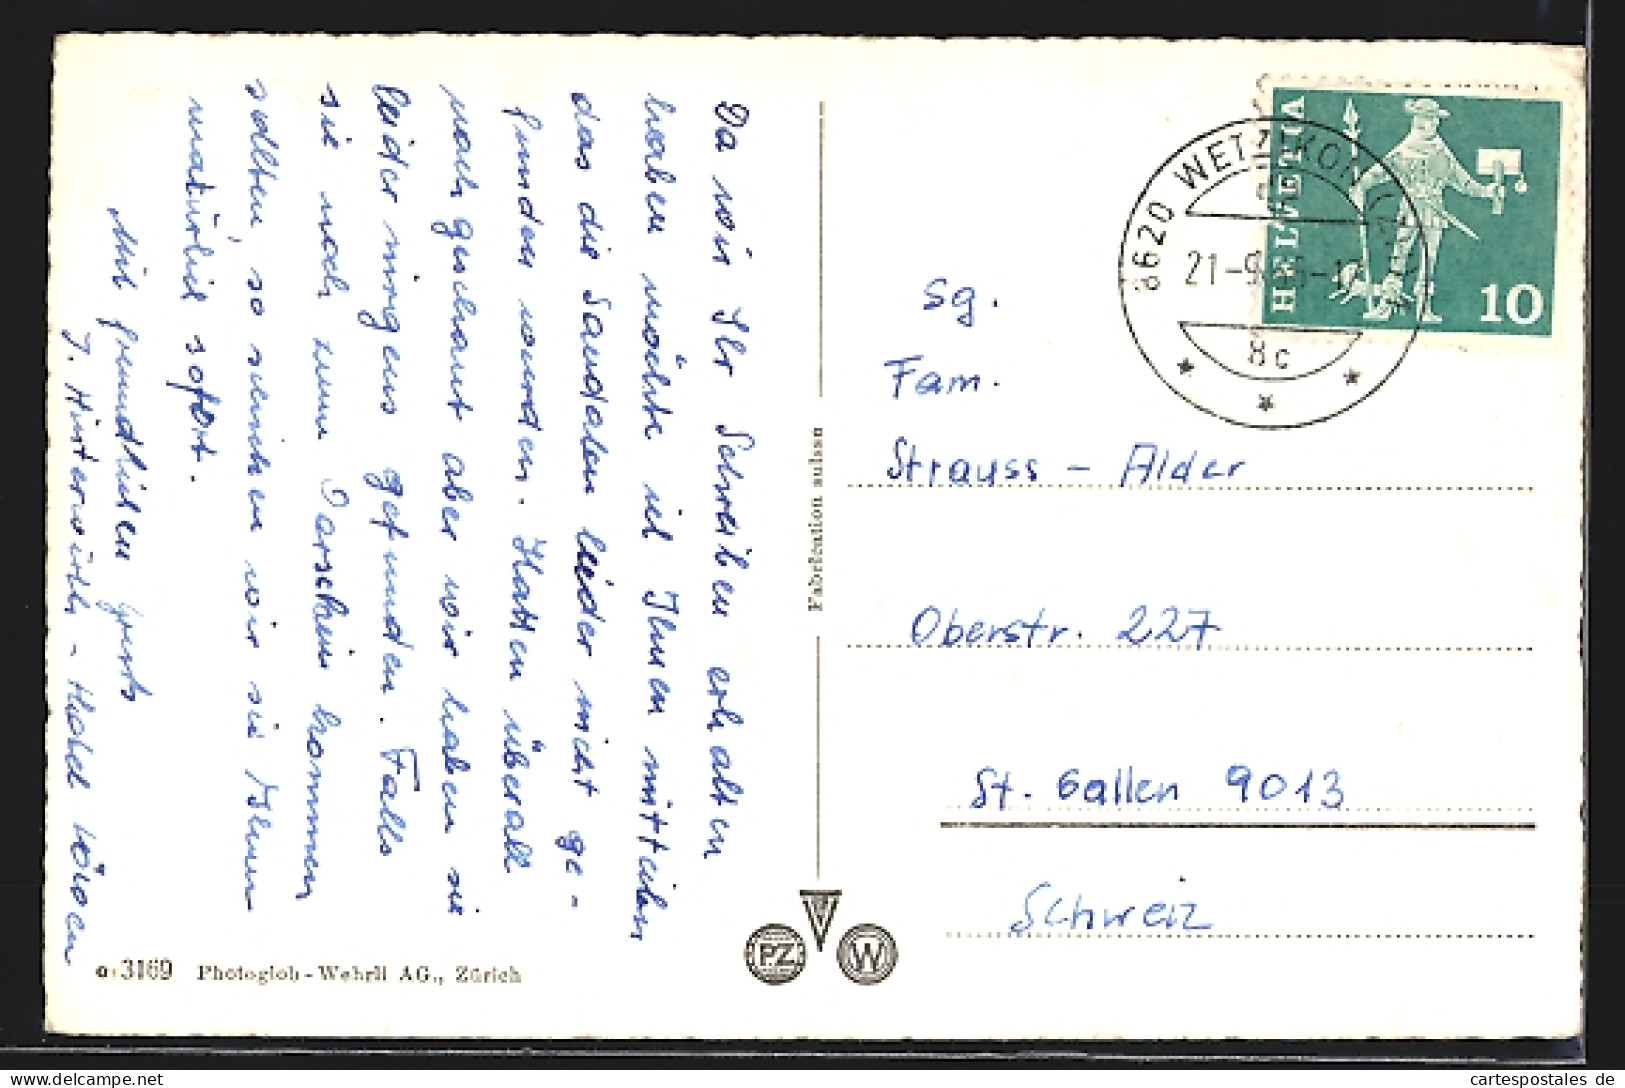 Da wir Ihr Schreiben erhalten
haben möchte ich Ihnen mitteilen
das die Sandalen leider nicht ge-
funden wurden. Hatten überall
nachgeschaut aber wir haben sie
leider nirgens gefunden. Falls
sie noch zum Vorschein kommen
sollten, so senden wir sie Ihnen
natürlich sofort.
Mit freundlichen Grüssen
J. Hinterwirth - Hotel Löwen
O. 3169 Photoglob-Wehrli AG., Zürich
Fabrication suisse
PZ W
HELVETIA
10
8620 WETZIKON
21-9
8c
Sg.
Fam.
Strauss - Alder
Oberstr. 227
St. Gallen 9013
Schweiz
cartespostales de